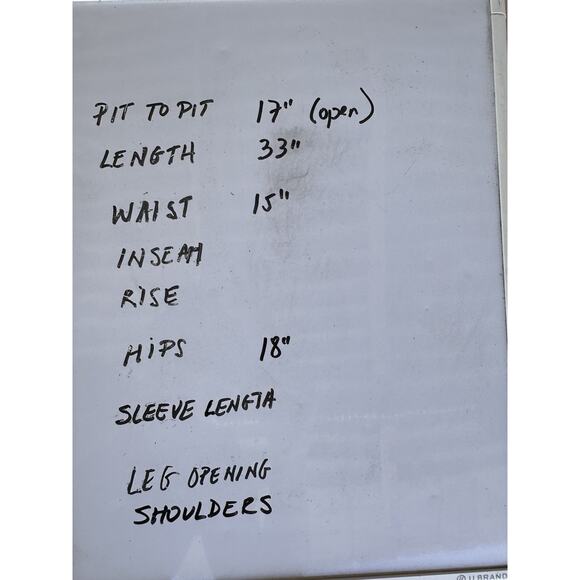 PIT TO PIT 17" (open)
LENGTH 33"
WAIST 15"
INSEAM
RISE
HiPS 18"
SLEEVE LENGTH
LEG OPENING
SHOULDERS
U BRAND